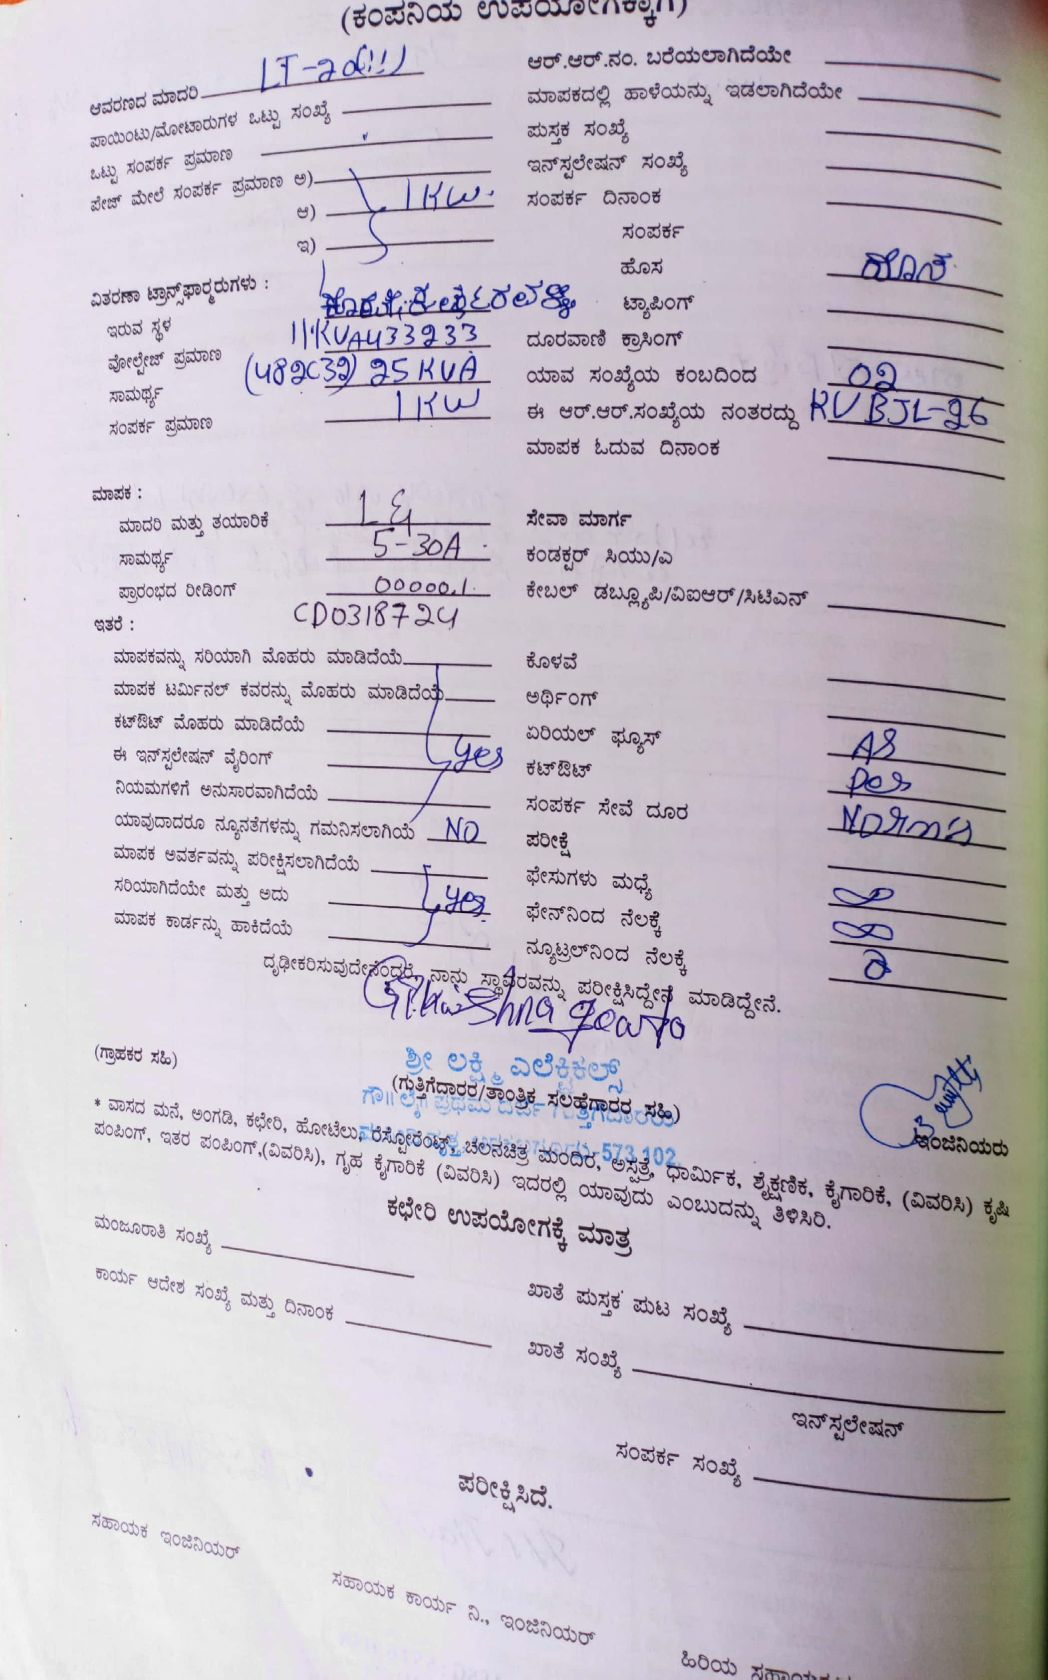 (ಕಂಪನಿಯ ಉಪಯೋಗಕ್ಕಾಗಿ)
ಆವರಣದ ಮಾದರಿ LT-2a(ii)
ಪಾಯಿಂಟು/ಮೋಟಾರುಗಳ ಒಟ್ಟು ಸಂಖ್ಯೆ
ಒಟ್ಟು ಸಂಪರ್ಕ ಪ್ರಮಾಣ
ಪೇಜ್ ಮೇಲೆ ಸಂಪರ್ಕ ಪ್ರಮಾಣ ಅ)
ಆ) 1KW.
ಇ)
ವಿತರಣಾ ಟ್ರಾನ್ಸ್‌ಫಾರ್‍ಮರುಗಳು :
ಇರುವ ಸ್ಥಳ
ವೋಲ್ಟೇಜ್ ಪ್ರಮಾಣ 11KVA433233
ಸಾಮರ್ಥ್ಯ 25KVA
ಸಂಪರ್ಕ ಪ್ರಮಾಣ 1KW
ಆರ್.ಆರ್.ನಂ. ಬರೆಯಲಾಗಿದೆಯೇ
ಮಾಪಕದಲ್ಲಿ ಹಾಳೆಯನ್ನು ಇಡಲಾಗಿದೆಯೇ
ಪುಸ್ತಕ ಸಂಖ್ಯೆ
ಇನ್‌ಸ್ಟಲೇಷನ್ ಸಂಖ್ಯೆ
ಸಂಪರ್ಕ ದಿನಾಂಕ
ಸಂಪರ್ಕ
ಹೊಸ ಹೊಸ
ಟ್ಯಾಪಿಂಗ್
ದೂರವಾಣಿ ಕ್ರಾಸಿಂಗ್
ಯಾವ ಸಂಖ್ಯೆಯ ಕಂಬದಿಂದ 02
ಈ ಆರ್.ಆರ್.ಸಂಖ್ಯೆಯ ನಂತರದ್ದು KVBJL-26
ಮಾಪಕ ಓದುವ ದಿನಾಂಕ
ಮಾಪಕ :
ಮಾದರಿ ಮತ್ತು ತಯಾರಿಕೆ L&
ಸಾಮರ್ಥ್ಯ 5-30A
ಪ್ರಾರಂಭದ ರೀಡಿಂಗ್ 00000.1
CD0318724
ಇತರೆ :
ಮಾಪಕವನ್ನು ಸರಿಯಾಗಿ ಮೊಹರು ಮಾಡಿದೆಯೆ
ಮಾಪಕ ಟರ್ಮಿನಲ್ ಕವರನ್ನು ಮೊಹರು ಮಾಡಿದೆಯೆ
ಕಟ್‌ಔಟ್ ಮೊಹರು ಮಾಡಿದೆಯೆ
ಈ ಇನ್‌ಸ್ಟಲೇಷನ್ ವೈರಿಂಗ್ yes
ನಿಯಮಗಳಿಗೆ ಅನುಸಾರವಾಗಿದೆಯೆ
ಯಾವುದಾದರೂ ನ್ಯೂನತೆಗಳನ್ನು ಗಮನಿಸಲಾಗಿಯೆ NO
ಮಾಪಕ ಅವರ್ತವನ್ನು ಪರೀಕ್ಷಿಸಲಾಗಿದೆಯೆ
ಸರಿಯಾಗಿದೆಯೇ ಮತ್ತು ಅದು yes
ಮಾಪಕ ಕಾರ್ಡನ್ನು ಹಾಕಿದೆಯೆ
ಸೇವಾ ಮಾರ್ಗ
ಕಂಡಕ್ಟರ್ ಸಿಯು/ಎ
ಕೇಬಲ್ ಡಬ್ಲ್ಯೂಪಿ/ವಿಐಆರ್/ಸಿಟಿಎನ್
ಕೊಳವೆ
ಅರ್ಥಿಂಗ್
ಏರಿಯಲ್ ಫ್ಯೂಸ್ AS
ಕಟ್‌ಔಟ್ per
ಸಂಪರ್ಕ ಸೇವೆ ದೂರ Norms
ಪರೀಕ್ಷೆ
ಫೇಸುಗಳು ಮಧ್ಯೆ ∞
ಫೇನ್‌ನಿಂದ ನೆಲಕ್ಕೆ ∞
ನ್ಯೂಟ್ರಲ್‌ನಿಂದ ನೆಲಕ್ಕೆ
ದೃಢೀಕರಿಸುವುದೇನೆಂದರೆ, ನಾನು ಸ್ಥಾವರವನ್ನು ಪರೀಕ್ಷಿಸಿದ್ದೇನೆ ಮಾಡಿದ್ದೇನೆ.
(ಗ್ರಾಹಕರ ಸಹಿ)
ಶ್ರೀ ಲಕ್ಷ್ಮಿ ಎಲೆಕ್ಟ್ರಿಕಲ್ಸ್
(ಗುತ್ತಿಗೆದಾರರ/ತಾಂತ್ರಿಕ ಸಲಹೆಗಾರರ ಸಹಿ)
573 102
ಇಂಜಿನಿಯರು
* ವಾಸದ ಮನೆ, ಅಂಗಡಿ, ಕಛೇರಿ, ಹೋಟೆಲು, ರೆಸ್ಟೋರೆಂಟ್, ಚಲನಚಿತ್ರ ಮಂದಿರ, ಆಸ್ಪತ್ರೆ, ಧಾರ್ಮಿಕ, ಶೈಕ್ಷಣಿಕ, ಕೈಗಾರಿಕೆ, (ವಿವರಿಸಿ) ಕೃಷಿ
ಪಂಪಿಂಗ್, ಇತರ ಪಂಪಿಂಗ್,(ವಿವರಿಸಿ), ಗೃಹ ಕೈಗಾರಿಕೆ (ವಿವರಿಸಿ) ಇದರಲ್ಲಿ ಯಾವುದು ಎಂಬುದನ್ನು ತಿಳಿಸಿರಿ.
ಕಛೇರಿ ಉಪಯೋಗಕ್ಕೆ ಮಾತ್ರ
ಮಂಜೂರಾತಿ ಸಂಖ್ಯೆ
ಕಾರ್ಯ ಆದೇಶ ಸಂಖ್ಯೆ ಮತ್ತು ದಿನಾಂಕ
ಖಾತೆ ಪುಸ್ತಕ ಪುಟ ಸಂಖ್ಯೆ
ಖಾತೆ ಸಂಖ್ಯೆ
ಇನ್‌ಸ್ಟಲೇಷನ್
ಸಂಪರ್ಕ ಸಂಖ್ಯೆ
ಪರೀಕ್ಷಿಸಿದೆ.
ಸಹಾಯಕ ಇಂಜಿನಿಯರ್
ಸಹಾಯಕ ಕಾರ್ಯ ನಿ., ಇಂಜಿನಿಯರ್
ಹಿರಿಯ